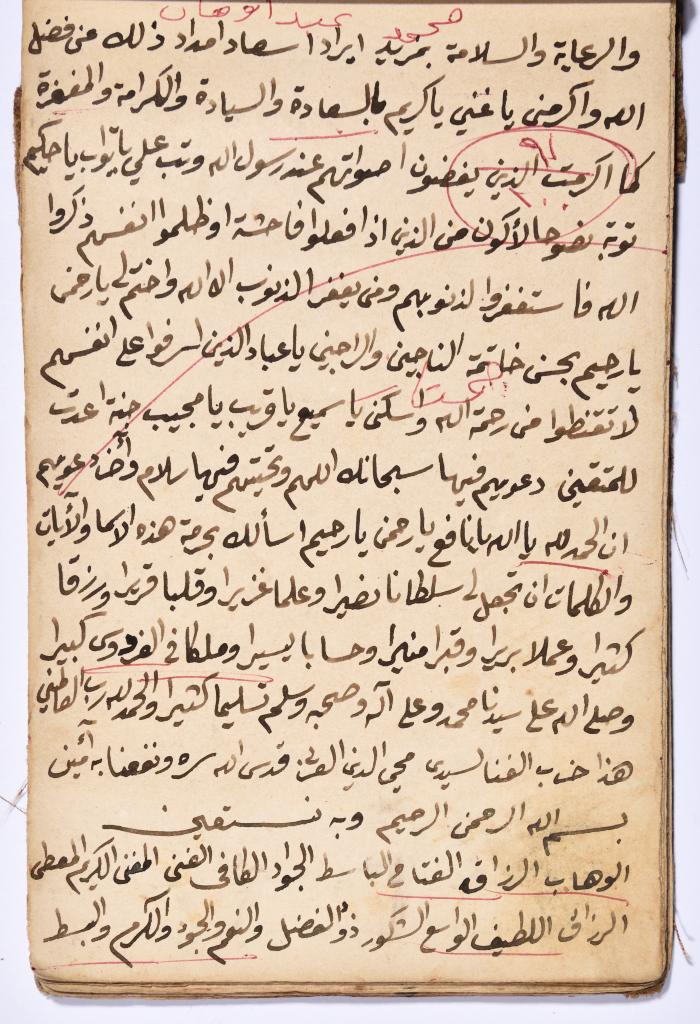 محمود عبد الوهاب
والرعاية والسلامة بمزيد ايراد اسعاد امداد ذلك من فضل
الله واكرمني يا غني يا كريم بالسعادة والسيادة والكرامة والمغفرة
كما اكرمت الذين يغضون اصواتهم عند رسول الله وتب علي يا تواب يا حكيم
توبة نصوحا لأكون من الذين اذا فعلوا فاحشة او ظلموا انفسهم ذكروا
الله فاستغفروا لذنوبهم ومن يغفر الذنوب الا الله واختم لي يا رحمن
يا رحيم بحسن خاتمة الناجين والراجين يا عباد الذين اسرفوا على انفسهم
لا تقنطوا من رحمة الله واسكني يا سميع يا قريب يا مجيب جنة اعدت
للمتقين دعويهم فيها سبحانك اللهم وتحيتهم فيها سلام وأخر دعويهم
ان الحمد لله يا الله يا نافع يا رحمن يا رحيم اسألك بحرمة هذه الاسما والآيات
والكلمات ان تجعل لي سلطانا نصيرا وعلما غزيرا وقلبا قريرا ورزقا
كثيرا وعملا بريرا وقبرا منيرا وحسابا يسيرا وملكا في الفردوس كبيرا
وصلى الله على سيدنا محمد وعلى آله وصحبه وسلم تسليما كثيرا والحمد لله رب العالمين
هذا حزب الغنا لسيدي محي الدين العربي قدس الله سره ونفعنا به آمين
بسم الله الرحمن الرحيم وبه نستعين
الوهاب الرزاق الفتاح الباسط الجواد الكافي الغني المغني الكريم المعطي
الرزاق اللطيف الواسع الشكور ذو الفضل والنعم والجود والكرم والبسط